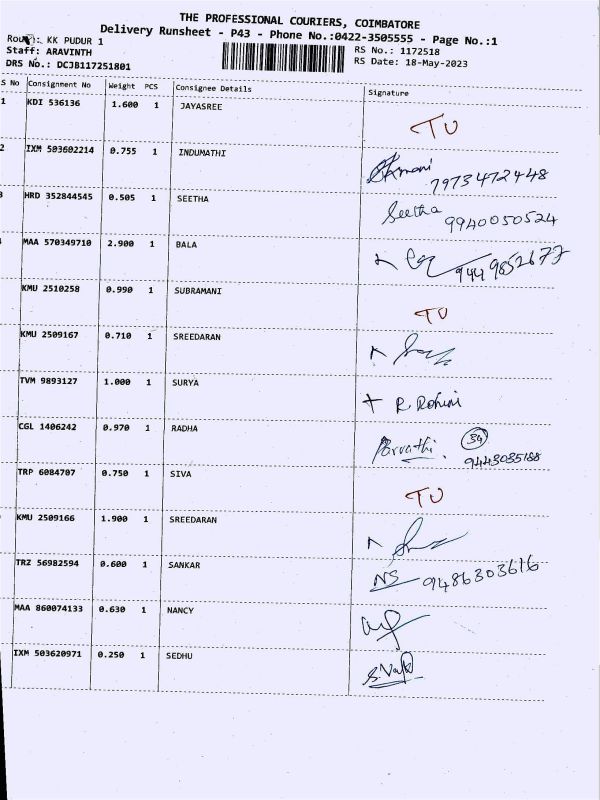 THE PROFESSIONAL COURIERS, COIMBATORE
Delivery Runsheet - P43 - Phone No.:0422-3505555 - Page No.:1
Route: KK PUDUR 1
Staff: ARAVINTH
DRS No.: DCJB117251801
RS No.: 1172518
RS Date: 18-May-2023
S No Consignment No Weight PCS Consignee Details Signature
1 KDI 536136 1.600 1 JAYASREE TU
2 IXM 503602214 0.755 1 INDUMATHI 7973472448
3 HRD 352844545 0.505 1 SEETHA Seetha 9940050524
MAA 570349710 2.900 1 BALA 9449852677
KMU 2510258 0.990 1 SUBRAMANI TU
KMU 2509167 0.710 1 SREEDARAN
TVM 9893127 1.000 1 SURYA R Rohini
CGL 1406242 0.970 1 RADHA Parvathi. 34 9443035188
TRP 6084707 0.750 1 SIVA TU
KMU 2509166 1.900 1 SREEDARAN
TRZ 56982594 0.600 1 SANKAR NS 9486303616
MAA 860074133 0.630 1 NANCY
IXM 503620971 0.250 1 SEDHU